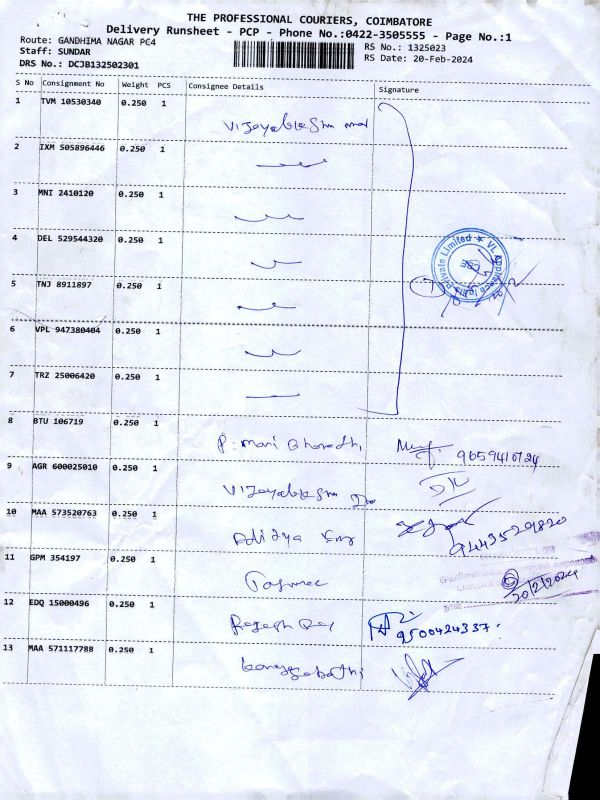 THE PROFESSIONAL COURIERS, COIMBATORE
Delivery Runsheet - PCP - Phone No.:0422-3505555 - Page No.:1
Route: GANDHIMA NAGAR PC4
Staff: SUNDAR
DRS No.: DCJB132502301
RS No.: 1325023
RS Date: 20-Feb-2024
S No Consignment No Weight PCS Consignee Details Signature
1 TVM 10530340 0.250 1
2 IXM 505896446 0.250 1
3 MNI 2410120 0.250 1
4 DEL 529544320 0.250 1
VL Appliances Private Limited
CBE
5 TNJ 8911897 0.250 1
6 VPL 947380404 0.250 1
7 TRZ 25006420 0.250 1
8 BTU 106719 0.250 1
P. Mani Bharathi 9659416724
9 AGR 600025010 0.250 1
10 MAA 573520763 0.250 1
Aditya 9443529820
11 GPM 354197 0.250 1
Tasmac 20/2/2024
12 EDQ 15000496 0.250 1
9500424337
13 MAA 571117788 0.250 1